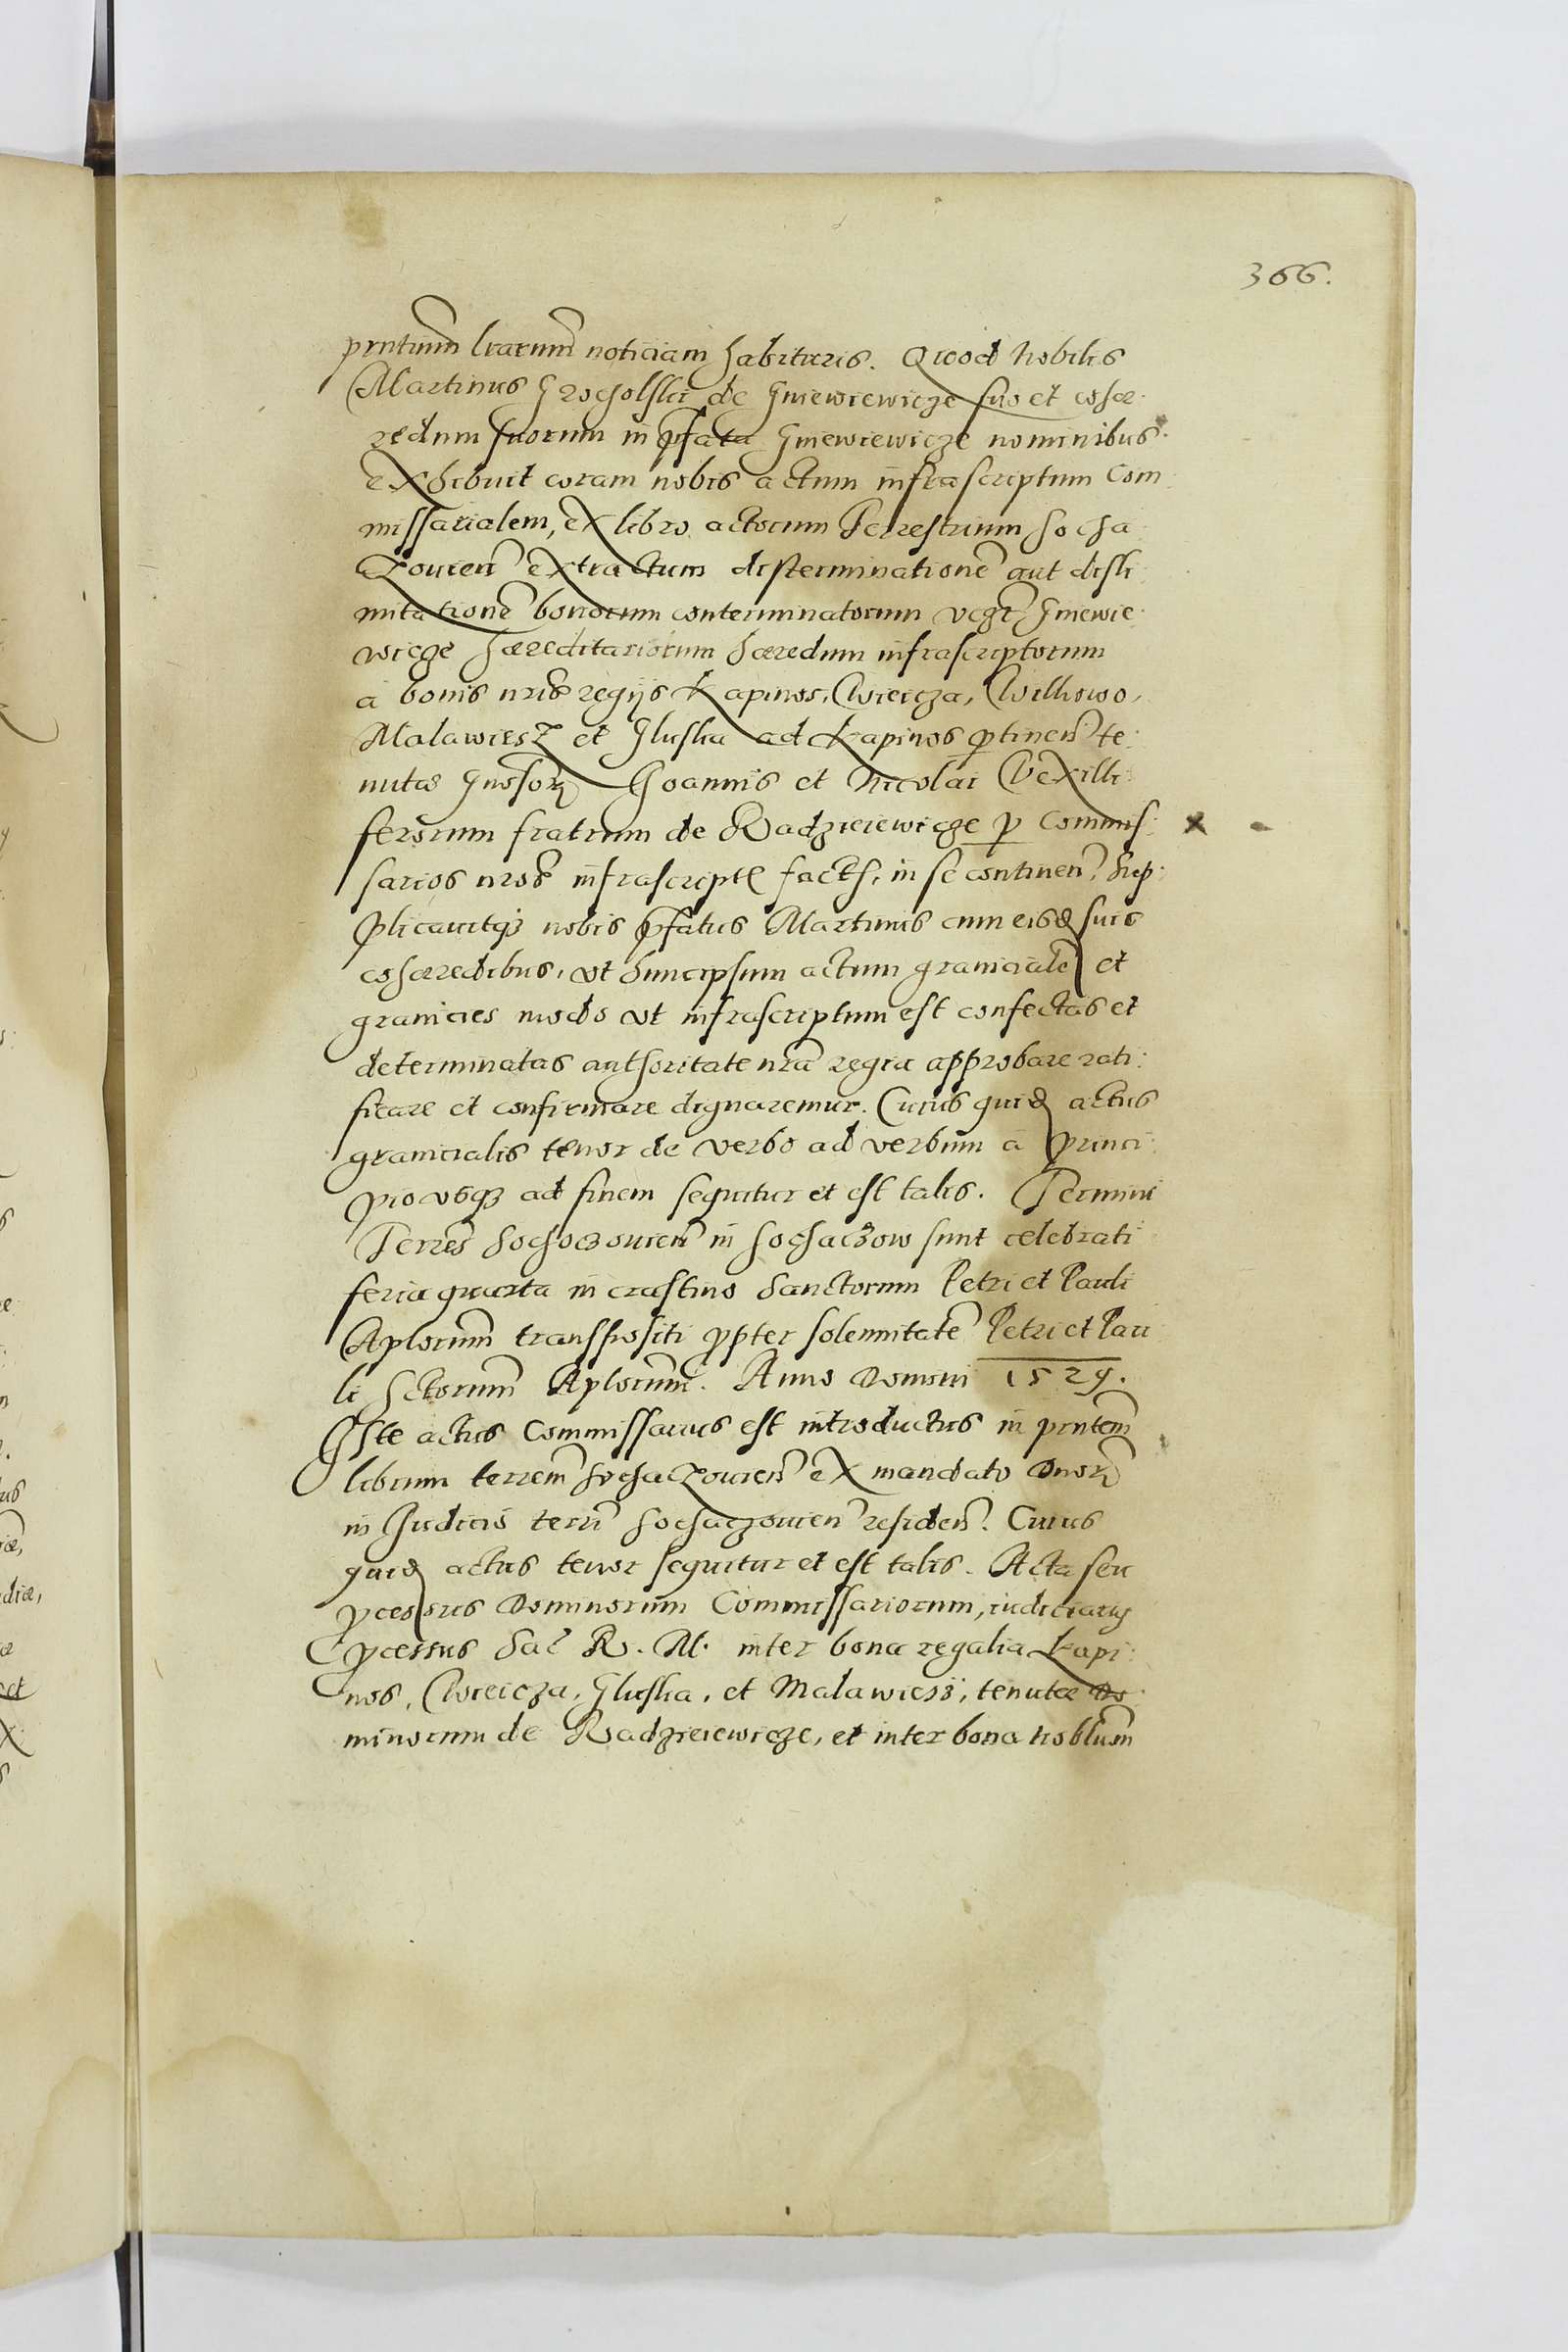 366.
prntium lrarum noticiam habituris. Quod Nobilis
Martinus Grocholski de Gniewiewicze suo et cohæ
redum suorum in pfata Gniewiewicze nominibus
exhibuit coram nobis actum infrascriptum Com
missarialem, ex libro actorum Terrestrium Socha
czouien extractum disterminatione aut disli
mitatione bonorum conterminatorum vcz Gniewie
wicze hæreditariorum hæredum infrascriptorum
a bonis nris regijs Kapinos, Wieicza, Wilkowo,
Malawiesz et Gluska ad Kapinos ptinen te
nutas Gnosor Joannis et Nicolai Vexilli
ferorum fratrum de Radzieiewicze p Commis
sarios nros infrascriptos factas, in se continen. Sup
plicauitq nobis pfatus Martinus cum eisd suis
cohæredibus, vt huncipsum actum granicialem et
granicies modo vt infrascriptum est confectas et
determinatas authoritate nra regia approbare rati:
ficare et confirmare dignaremur. Cuius quid actus
granicialis tenor de verbo ad verbum a princi
pio vsq ad finem sequitur et est talis. Termini
Terres Sochoczouien in Sochaczow sunt celebrati
feria quarta in crastino Sanctorum Petri et Pauli
Aplorum transpositi ppter solemnitate Petri et Pau
li Sctorum Aplorum. Anno Domini 1529.
Iste actus Commissarius est introductus in pntem
librum terrem Sochaczouien ex mandato Dnor
in Judicio terri Sochaczouien residen. Cuius
quid actus tenor sequitur et est talis. Acta seu
pcessus Dominorum Commissariorum, iudiciariq
pcessus Sac R. M. inter bona regalia Kapi
nos, Wieicza, Gluska, et Malawiesz, tenutæ Do
minorum de Radzieiewicze, et inter bona nobilium